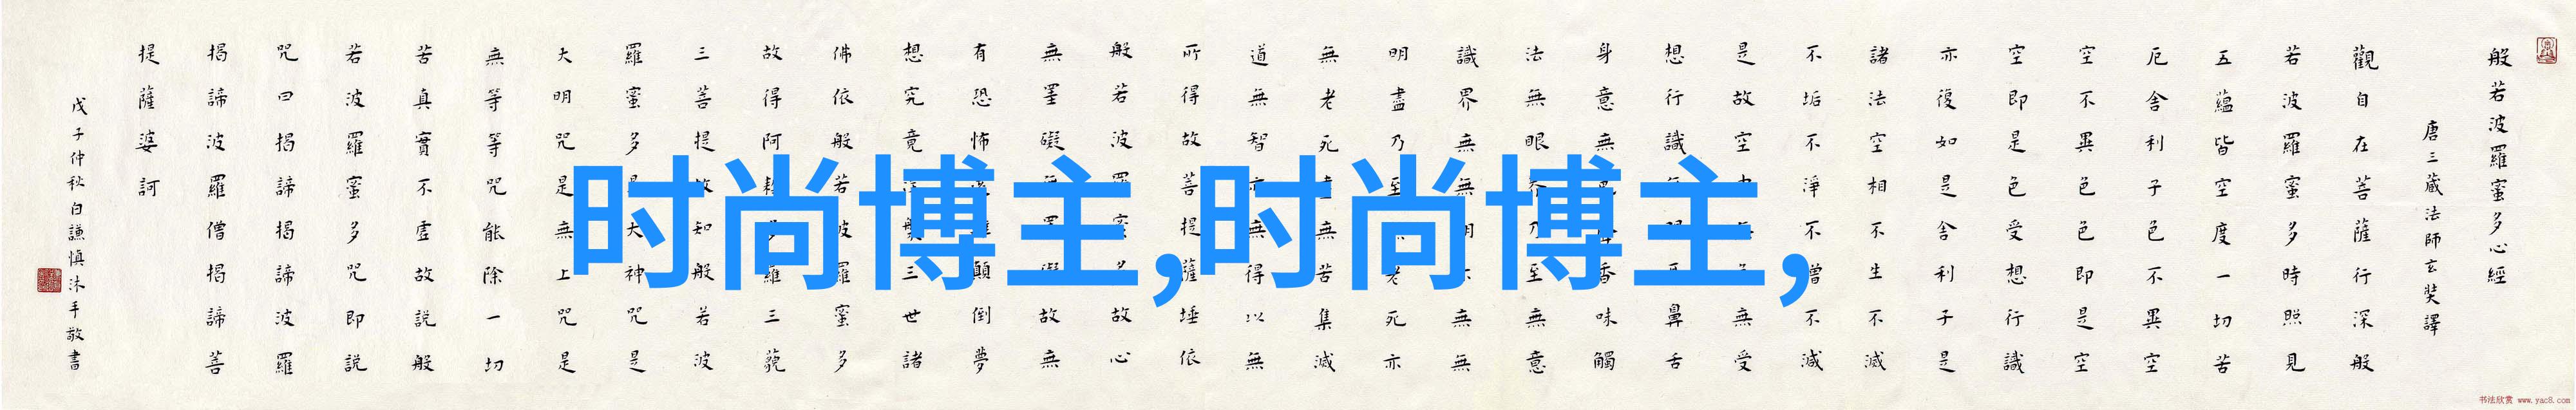 般若波羅蜜多心經
唐三藏法師玄奘譯
觀自在菩薩行深般
若波羅蜜多時照見
五蘊皆空度一切苦
厄舍利子色不異空
空不異色色即是空
空即是色受想行識
亦復如是舍利子是
諸法空相不生不滅
不垢不淨不增不減
是故空中無色無受
想行識無眼耳鼻舌
身意無色聲香味觸
法無眼界乃至無意
識界無無明亦無無
明盡乃至無老死亦
無老死盡無苦集滅
道無智亦無得以無
所得故菩提薩埵依
般若波羅蜜多故心
無罣礙無罣礙故無
有恐怖遠離顛倒夢
想究竟涅槃三世諸
佛依般若波羅蜜多
故得阿耨多羅三藐
三菩提故知般若波
羅蜜多是大神咒是
大明咒是無上咒是
無等等咒能除一切
苦真實不虛故說般
若波羅蜜多咒即說
咒曰揭諦揭諦波羅
揭諦波羅僧揭諦菩
提薩婆訶
戊子仲秋白謙慎沐手敬書
时尚博主,时尚博主,
书法欣赏 www.yac8.com